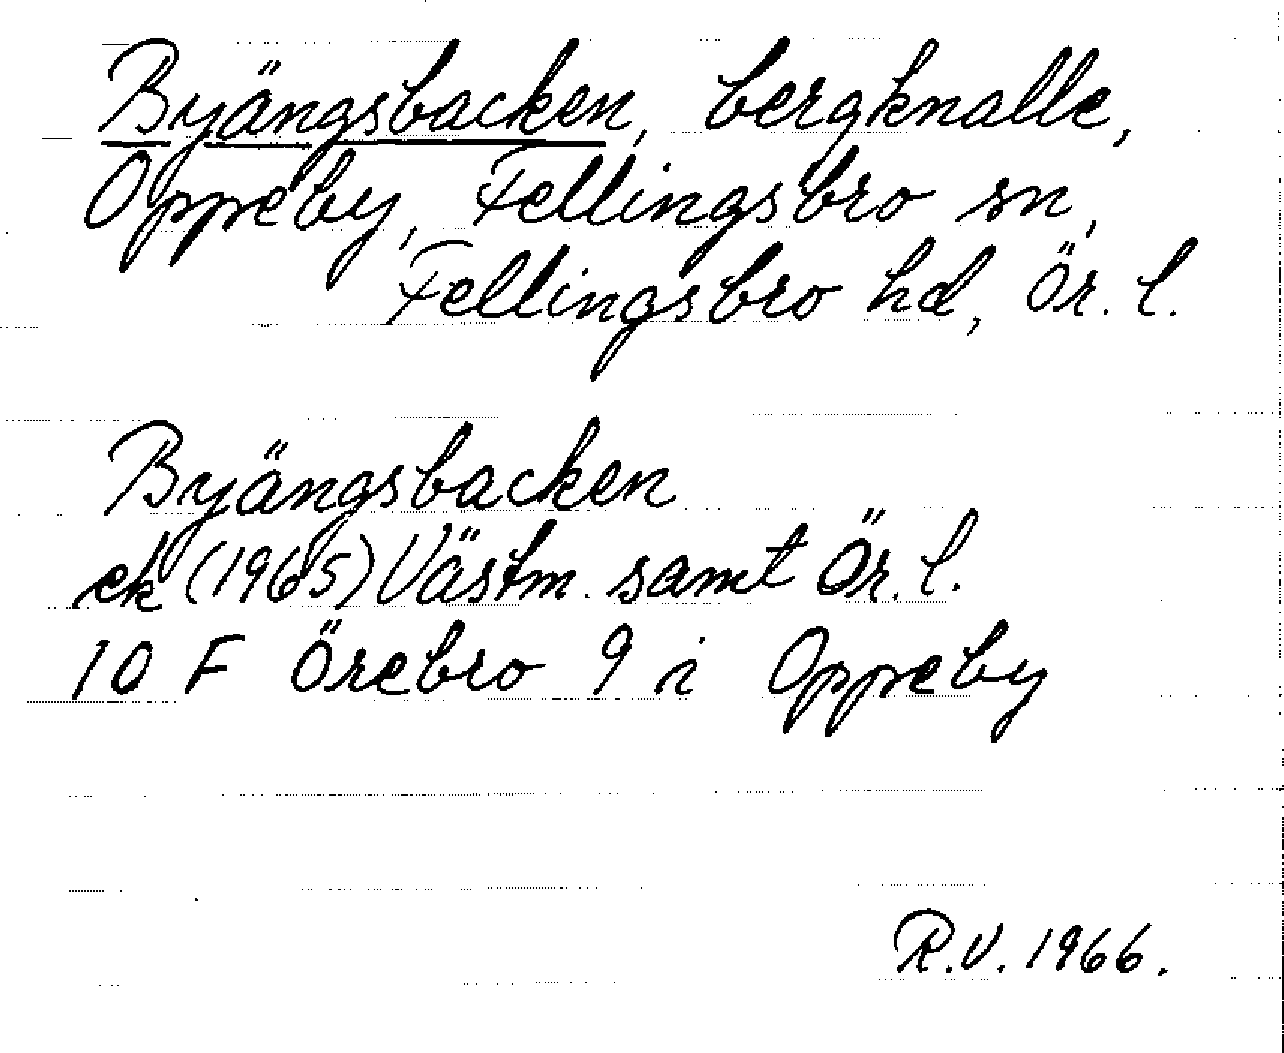 Byängsbacken, bergknalle,
Oppeby, Fellingsbro sn,
Fellingsbro hd, Ör. l.
Byängsbacken
ek (1965) Västm. samt Ör. l.
10 F Örebro 9 i Oppeby
R.V. 1966.